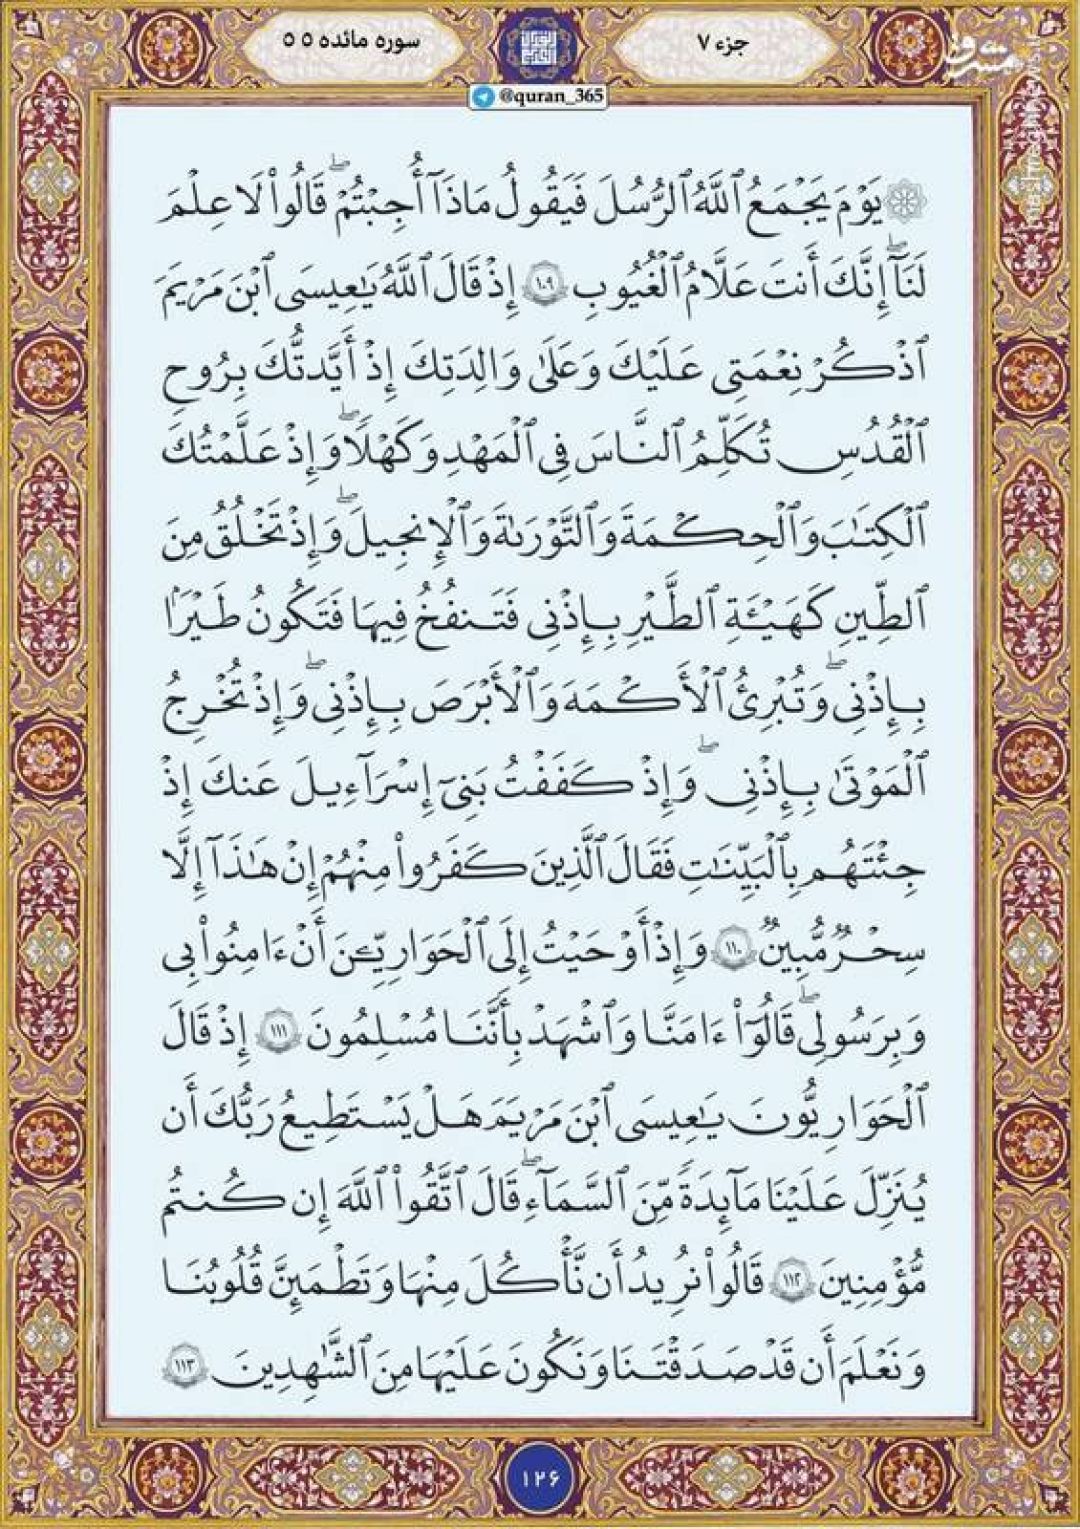 جزء ۷
سوره مائده ۵ ۵
مشرق
mashreghnews.ir
@quran_365
۞ يَوْمَ يَجْمَعُ ٱللَّهُ ٱلرُّسُلَ فَيَقُولُ مَاذَآ أُجِبْتُمْ ۖ قَالُوا۟ لَا عِلْمَ
لَنَآ ۖ إِنَّكَ أَنتَ عَلَّـٰمُ ٱلْغُيُوبِ ۝١٠٩ إِذْ قَالَ ٱللَّهُ يَـٰعِيسَى ٱبْنَ مَرْيَمَ
ٱذْكُرْ نِعْمَتِى عَلَيْكَ وَعَلَىٰ وَٰلِدَتِكَ إِذْ أَيَّدتُّكَ بِرُوحِ
ٱلْقُدُسِ تُكَلِّمُ ٱلنَّاسَ فِى ٱلْمَهْدِ وَكَهْلًا ۖ وَإِذْ عَلَّمْتُكَ
ٱلْكِتَـٰبَ وَٱلْحِكْمَةَ وَٱلتَّوْرَىٰةَ وَٱلْإِنجِيلَ ۖ وَإِذْ تَخْلُقُ مِنَ
ٱلطِّينِ كَهَيْـَٔةِ ٱلطَّيْرِ بِإِذْنِى فَتَنفُخُ فِيهَا فَتَكُونُ طَيْرًۢا
بِإِذْنِى ۖ وَتُبْرِئُ ٱلْأَكْمَهَ وَٱلْأَبْرَصَ بِإِذْنِى ۖ وَإِذْ تُخْرِجُ
ٱلْمَوْتَىٰ بِإِذْنِى ۖ وَإِذْ كَفَفْتُ بَنِىٓ إِسْرَٰٓءِيلَ عَنكَ إِذْ
جِئْتَهُم بِٱلْبَيِّنَـٰتِ فَقَالَ ٱلَّذِينَ كَفَرُوا۟ مِنْهُمْ إِنْ هَـٰذَآ إِلَّا
سِحْرٌ مُّبِينٌ ۝١١٠ وَإِذْ أَوْحَيْتُ إِلَى ٱلْحَوَارِيِّـۧنَ أَنْ ءَامِنُوا۟ بِى
وَبِرَسُولِى ۖ قَالُوٓا۟ ءَامَنَّا وَٱشْهَدْ بِأَنَّنَا مُسْلِمُونَ ۝١١١ إِذْ قَالَ
ٱلْحَوَارِيُّونَ يَـٰعِيسَى ٱبْنَ مَرْيَمَ هَلْ يَسْتَطِيعُ رَبُّكَ أَن
يُنَزِّلَ عَلَيْنَا مَآئِدَةً مِّنَ ٱلسَّمَآءِ ۖ قَالَ ٱتَّقُوا۟ ٱللَّهَ إِن كُنتُم
مُّؤْمِنِينَ ۝١١٢ قَالُوا۟ نُرِيدُ أَن نَّأْكُلَ مِنْهَا وَتَطْمَئِنَّ قُلُوبُنَا
وَنَعْلَمَ أَن قَدْ صَدَقْتَنَا وَنَكُونَ عَلَيْهَا مِنَ ٱلشَّـٰهِدِينَ ۝١١٣
۱۲۶